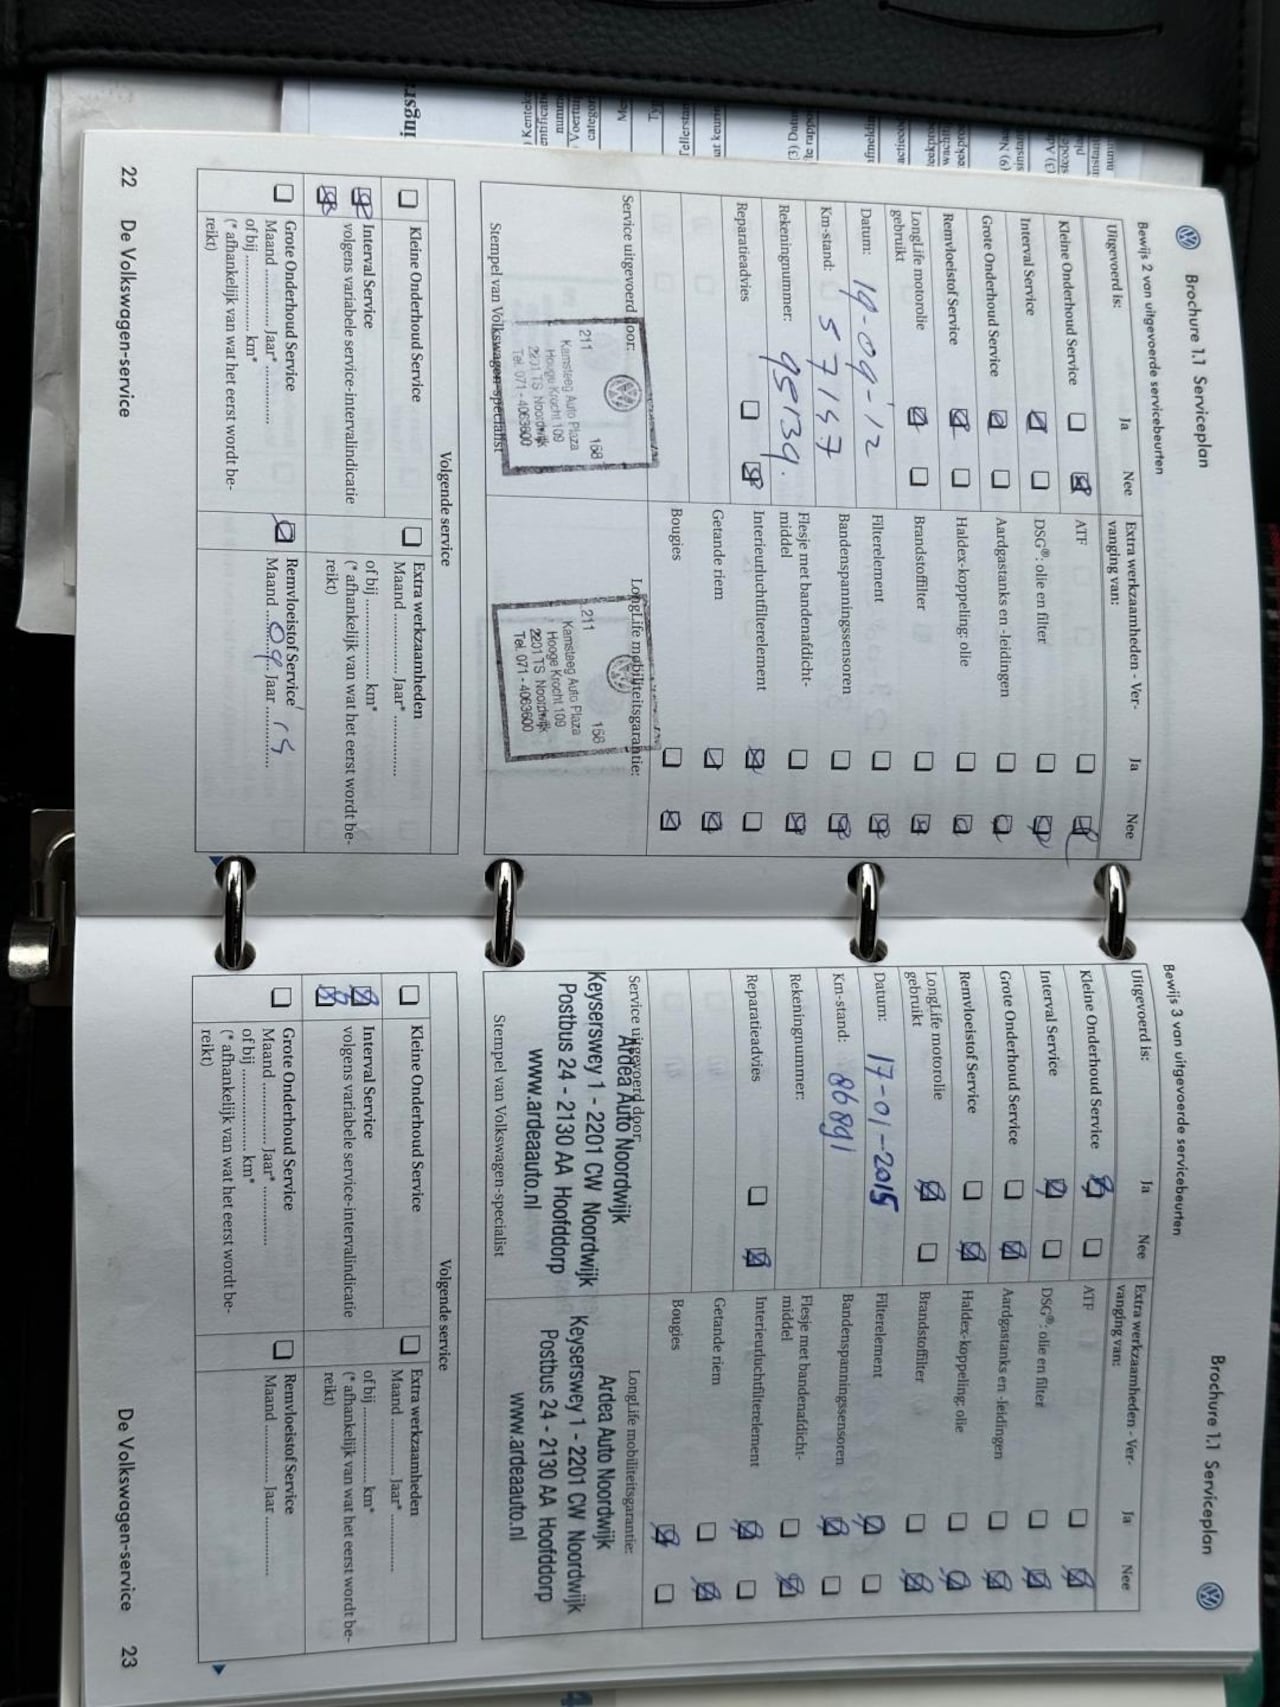 Brochure 1.1 Serviceplan
Bewijs 2 van uitgevoerde servicebeurten
Uitgevoerd is:
Ja
Nee
Kleine Onderhoud Service
Interval Service
Grote Onderhoud Service
Remvloeistof Service
LongLife motorolie
gebruikt
Datum: 19-09-12
Km-stand: 57147
Rekeningnummer: 95139.
Reparatieadvies
Extra werkzaamheden - Ver-
vanging van:
Ja
Nee
ATF
DSG®: olie en filter
Aardgastanks en -leidingen
Haldex-koppeling: olie
Brandstoffilter
Filterelement
Bandenspanningssensoren
Flesje met bandenafdicht-
middel
Interieurluchtfilterelement
Getande riem
Bougies
Service uitgevoerd door:
211
168
Kamsteeg Auto Plaza
Hooge Krocht 109
2201 TS Noordwijk
Tel. 071 - 4063600
Stempel van Volkswagen-specialist
LongLife mobiliteitsgarantie:
211
168
Kamsteeg Auto Plaza
Hooge Krocht 109
2201 TS Noordwijk
Tel. 071 - 4063600
Volgende service
Kleine Onderhoud Service
Interval Service
volgens variabele service-intervalindicatie
Grote Onderhoud Service
Maand ............ Jaar* ............
of bij ............ km*
(* afhankelijk van wat het eerst wordt be-
reikt)
Extra werkzaamheden
Maand ............ Jaar* ............
of bij ............ km*
(* afhankelijk van wat het eerst wordt be-
reikt)
Remvloeistof Service
Maand 09 Jaar
22 De Volkswagen-service
Brochure 1.1 Serviceplan
Bewijs 3 van uitgevoerde servicebeurten
Uitgevoerd is:
Ja
Nee
Kleine Onderhoud Service
Interval Service
Grote Onderhoud Service
Remvloeistof Service
LongLife motorolie
gebruikt
Datum: 17-01-2015
Km-stand: 86891
Rekeningnummer:
Reparatieadvies
Extra werkzaamheden - Ver-
vanging van:
Ja
Nee
ATF
DSG®: olie en filter
Aardgastanks en -leidingen
Haldex-koppeling: olie
Brandstoffilter
Filterelement
Bandenspanningssensoren
Flesje met bandenafdicht-
middel
Interieurluchtfilterelement
Getande riem
Bougies
Service uitgevoerd door:
Ardea Auto Noordwijk
Keyserswey 1 - 2201 CW Noordwijk
Postbus 24 - 2130 AA Hoofddorp
www.ardeaauto.nl
Stempel van Volkswagen-specialist
LongLife mobiliteitsgarantie:
Ardea Auto Noordwijk
Keyserswey 1 - 2201 CW Noordwijk
Postbus 24 - 2130 AA Hoofddorp
www.ardeaauto.nl
Volgende service
Kleine Onderhoud Service
Interval Service
volgens variabele service-intervalindicatie
Grote Onderhoud Service
Maand ............ Jaar* ............
of bij ............ km*
(* afhankelijk van wat het eerst wordt be-
reikt)
Extra werkzaamheden
Maand ............ Jaar* ............
of bij ............ km*
(* afhankelijk van wat het eerst wordt be-
reikt)
Remvloeistof Service
Maand ............ Jaar ............
De Volkswagen-service 23